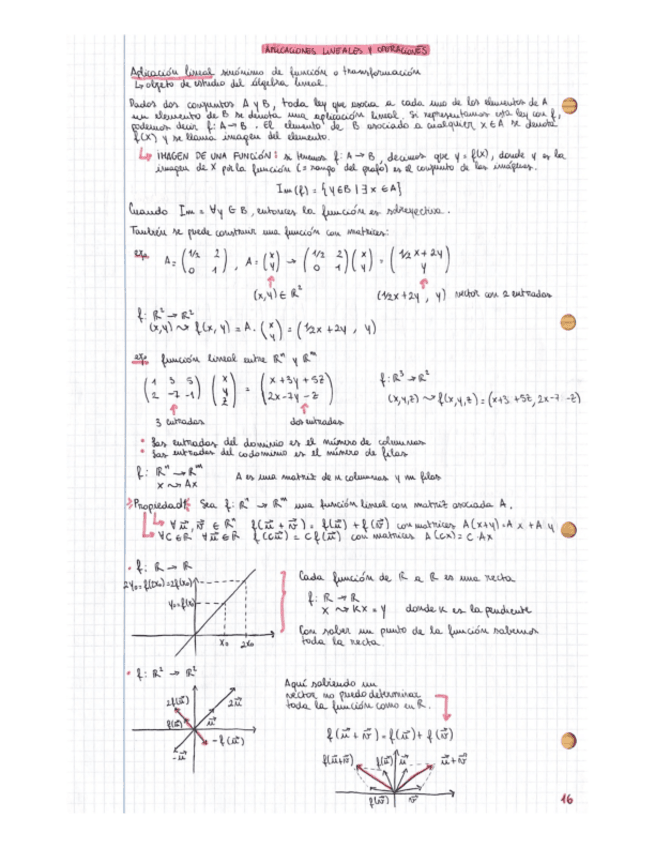 APLICACIONES LINEALES Y OPERACIONES
Aplicación lineal sinónimo de función o transformación
↳ objeto de estudio del álgebra lineal.
Dados dos conjuntos A y B, toda ley que asocia a cada uno de los elementos de A
un elemento de B se denota una aplicación lineal. Si representamos esta ley con f,
podemos decir f: A → B. El elemento de B asociado a cualquier x ∈ A se denota
f(x) y se llama imagen del elemento.
↳ IMAGEN DE UNA FUNCIÓN: si tenemos f: A → B, decimos que y = f(x), donde y es la
imagen de x por la función (= rango del grafo) es el conjunto de las imágenes.
Im(f) = {y ∈ B | ∃ x ∈ A}
Cuando Im = ∀y ∈ B, entonces la función es sobreyectiva.
También se puede construir una función con matrices:
A = (1/2 2 / 0 1), A = (x / y) → (1/2 2 / 0 1)(x / y) = (1/2 x + 2y / y)
(x,y) ∈ R² (1/2x + 2y, y) vector con 2 entradas
f: R² → R²
(x,y) ⤳ f(x, y) = A · (x / y) = (1/2x + 2y, y)
función lineal entre Rⁿ y Rᵐ
(1 3 5 / 2 -7 -1) (x / y / z) = (x + 3y + 5z / 2x - 7y - z) f: R³ → R²
(x,y,z) ⤳ f(x,y,z) = (x+3 +5z, 2x-7 -z)
3 entradas dos entradas
• Las entradas del dominio es el número de columnas
• Las entradas del codominio es el número de filas
f: Rⁿ → Rᵐ A es una matriz de n columnas y m filas
x ⤳ Ax
Propiedad: Sea f: Rⁿ → Rᵐ una función lineal con matriz asociada A.
↳ ∀ u⃗, v⃗ ∈ Rⁿ f(u⃗ + v⃗) = f(u⃗) + f(v⃗) con matrices A(x+y) = A x + A y
↳ ∀C ∈ R ∀u⃗ ∈ R f(Cu⃗) = C f(u⃗) con matrices A(Cx) = C·Ax
• f: R → R
2y₀ = f(2x₀) = 2f(x₀)
y₀ = f(x₀)
x₀ 2x₀
Cada función de R a R es una recta
f: R → R
x ⤳ Kx = y donde K es la pendiente
Con saber un punto de la función sabemos
toda la recta.
• f: R² → R²
2f(u⃗) 2u⃗
f(u⃗) u⃗
-u⃗ -f(u⃗)
Aquí sabiendo un
vector no puedo determinar
toda la función como en R.
f(u⃗ + v⃗) = f(u⃗) + f(v⃗)
f(u⃗+v⃗) f(u⃗) u⃗ u⃗+v⃗
f(v⃗) v⃗
16